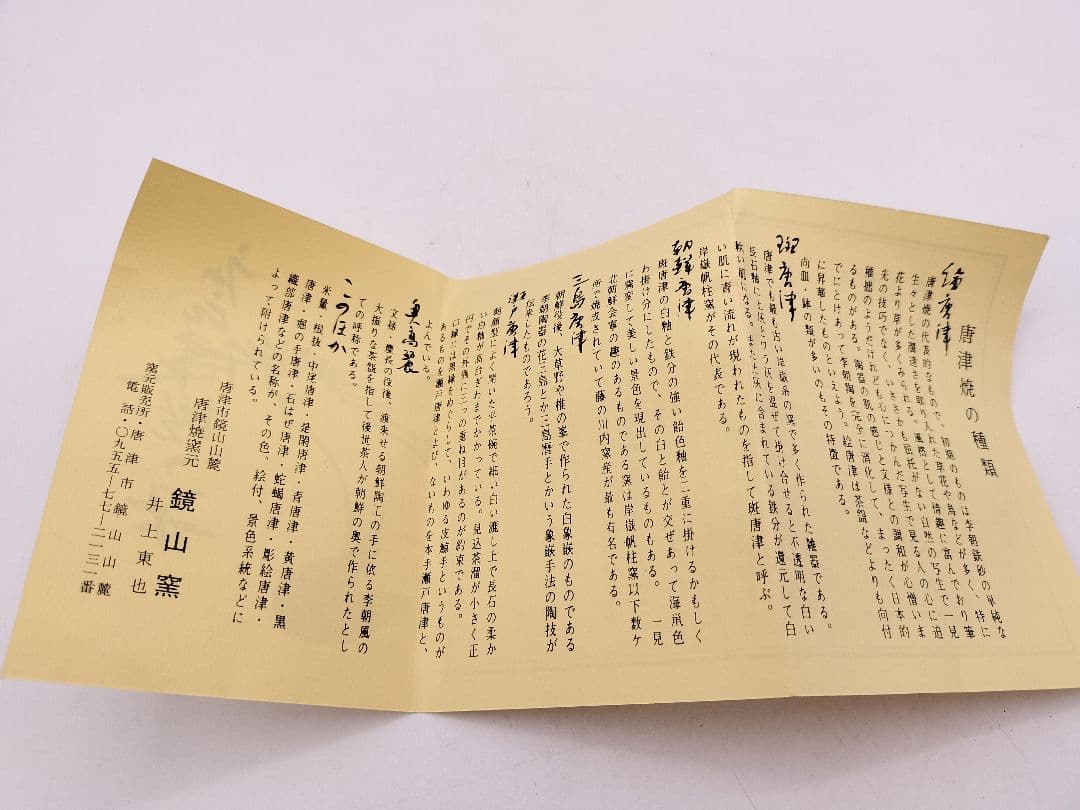 唐津焼の種類
絵唐津
唐津焼の代表的なもので、初期のものは李朝鉄砂の単純な
生々とした闊達さを取り入れた草花や鳥などが多く、特に
花より草が多くみられる。風格として情趣に富んでおり華
先の技巧でなく、いささかも屈託がない自然の写生で一見
稚拙のようだけれども心につかんだ写生で見る人の心に迫
るものがある。陶器の肌の感じと文様との調和が心憎いま
でにとけあって李朝陶を完全に消化して、まったく日本的
に昇華したものといえよう。絵唐津は茶碗などよりも向付
向皿・鉢の類が多いのもその特徴である。
斑唐津
唐津でも最も古い岸嶽系の窯で多く作られた雑器である。
長石釉に土灰とワラ灰を混ぜて掛け合せると不透明な白い
軟い肌になる。またたた灰に含まれている鉄分が還元して白
い肌に青い流れが現われたものを指して斑唐津と呼ぶ。
岸嶽帆柱窯がその代表である。
朝鮮唐津
斑唐津の白釉と鉄分の強い飴色釉を二重に掛けるかもしく
わ掛け分にしたもので、その白と飴とが交ぜあって海鼠色
に窯変して美しい景色を現出しているものもある。一見
北朝鮮会寧の趣のあるものである窯は岸嶽帆柱窯以下数ケ
所で焼かれていて藤の川内窯産が最も有名である。
三島唐津
朝鮮役後、大草野や椎の峯で作られた白象嵌のものである
李朝陶器の花三島とか三島暦手とかいう象嵌手法の陶技が
伝来したものであろう。
瀬戸唐津
朝顔型によく開いた平茶碗で粗い白い漉し土で長石の柔か
い白釉が高台ぎわまでかかっている。見込茶溜が小さく正
円でその外側に三つの重ね目があるのが約束である。
口縁には黒縁をめぐらして、いわゆる皮鯨手というものが
あるものを瀬戸唐津とよび、ないものを本手瀬戸唐津と、
よんでいる。
奥高麗
文禄・慶長の役後、渡来せる朝鮮陶この手に依る李朝風の
大振りな茶碗を指して後世茶人が朝鮮の奥で作られたとし
ての呼称である。
このほか
米量・根抜・中尾唐津・是閑唐津・青唐津・黄唐津・黒
唐津・堀の手唐津・石はぜ唐津・蛇蝎唐津・彫絵唐津・
織部唐津などの名称が、その色、絵付、景色系統などに
よって附けられている。
唐津市鏡山山麓
唐津焼窯元 鏡山窯
井上東也
窯元販売所・唐津市鏡山山麓
電話・〇九五五―七七―二一三一番